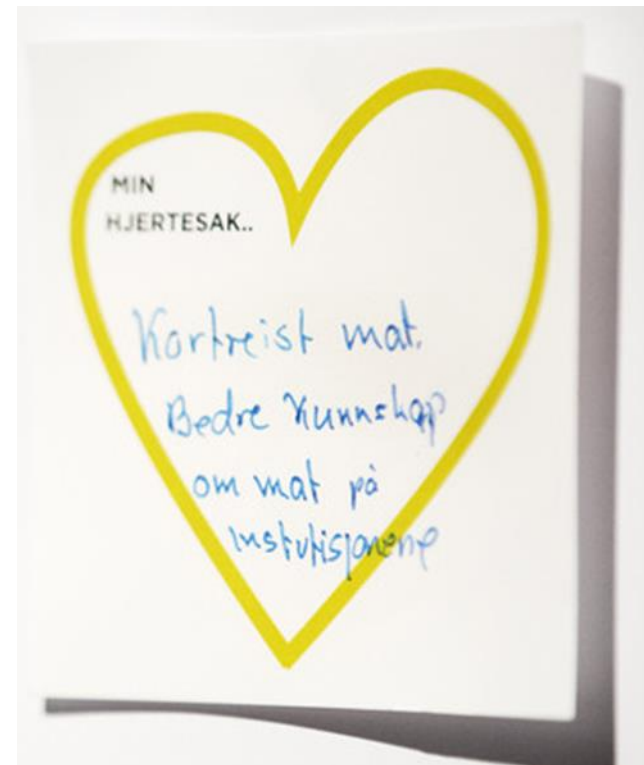 MIN
HJERTESAK..
Kortreist mat.
Bedre kunnskap
om mat på
instutisjonene